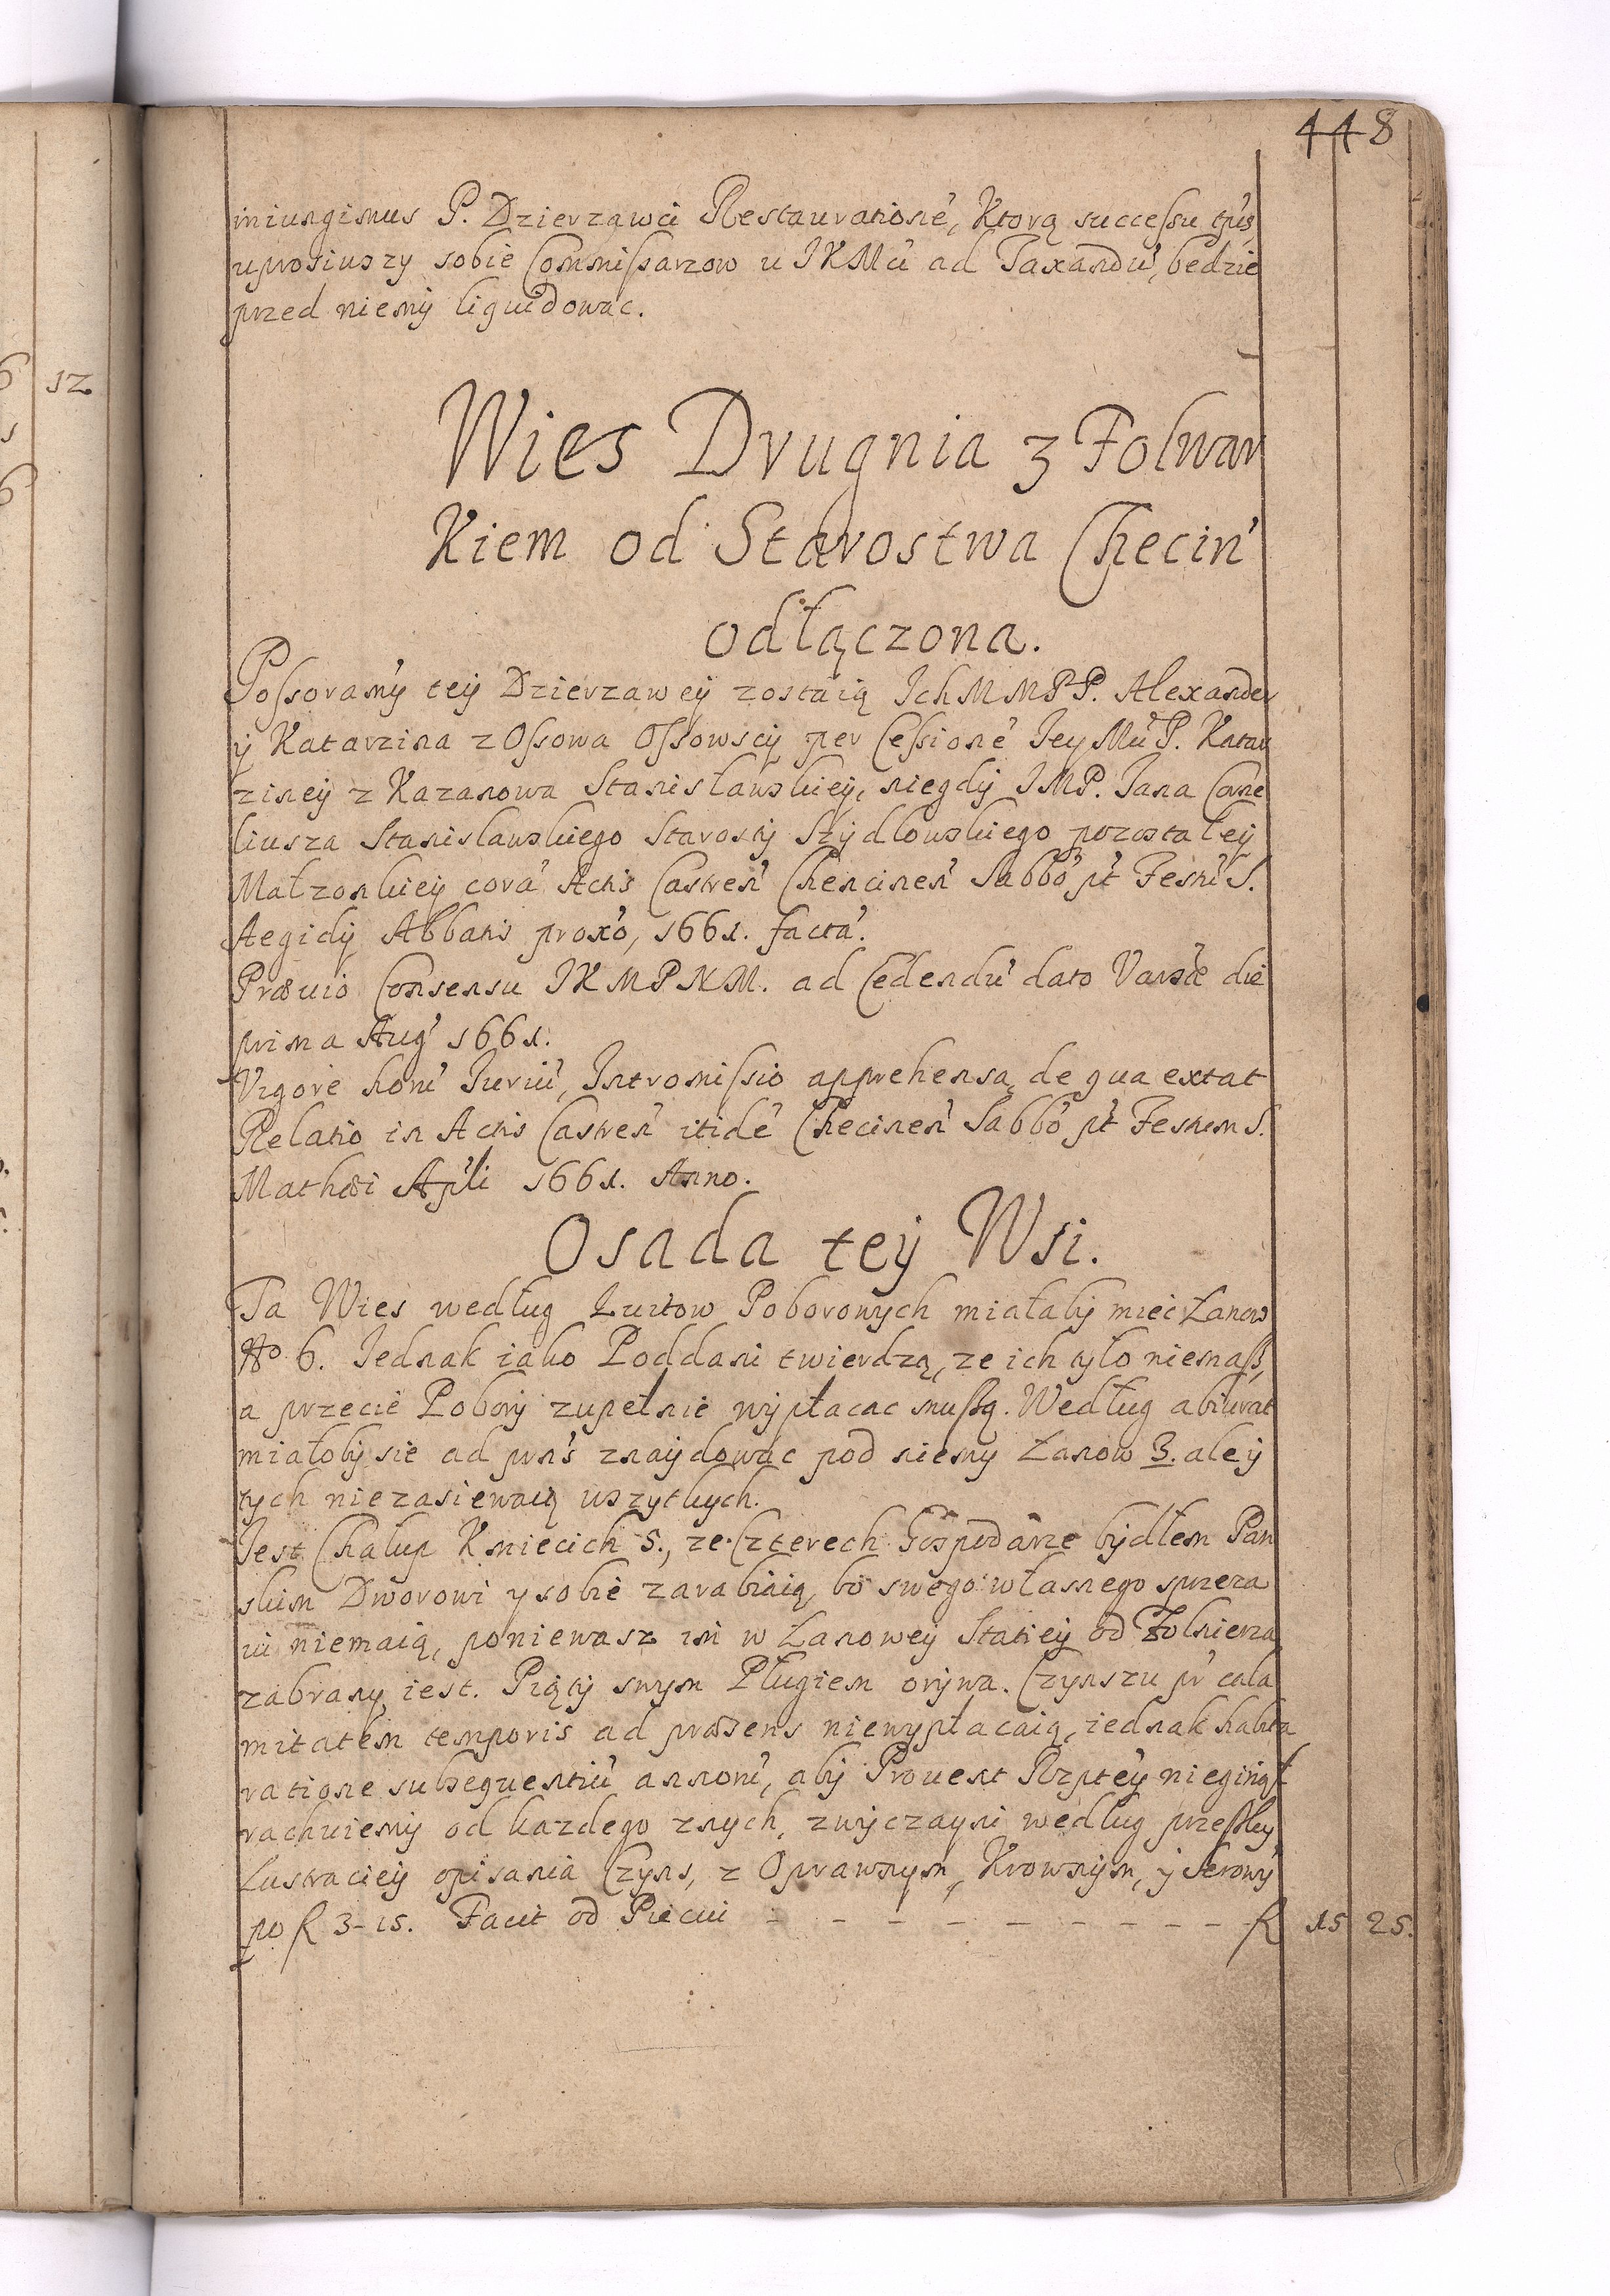 448
iniungimus P. Dzierzawci Restaurationé, Ktorą successu tp̄is
uprosiwszy sobie Commissarzow u JKMci ad Taxandū, bedzie
przed niemy liquidowac.
Wies Drugnia z Folwar
Kiem od Starostwa Checiń
odłączona.
Possoramy tey Dzierzawey zostaią IchMMPP. Alexander
ÿ Katarzina z Ossowa Ossowscÿ per Cessioné Jey Mci P. Katar
zineÿ z Kazanowa Stanisławskieÿ, niegdÿ JMP. Jana Corne
liusza Stanislawskiego Starostÿ Szÿdlowskiego pozostałeÿ
Małzonkieÿ corá Actis Castreń Chencineń Sabbo pt Festū S.
Aegidÿ Abbatis proxo, 1661. factá.
Præuio Consensu JKMPNM. ad Cedendū dato Varsæ die
prima Aug 1661.
Vigore horū Juriū, Intromissio apprehensa, de qua extat
Relatio in Actis Castreń itidé Checineń Sabbo pt Festum S.
Mathæi Apli 1661. Anno.
Osada tey Wsi.
Ta Wies według Kwitow Poborowych miałaby mieć Łanow
No 6. Jednak iako Poddani twierdzą, ze ich tylo niemasz,
a przecie Poborÿ zupełnie wÿpłacac muszą. Według abiurat
miałobÿ sie ad prns znaÿdowac pod niemy Łanow 3. ale ÿ
tych niezasiewaią wszytkych.
Jest Chałup Kmiecich 5., ze Czterech Gospodarze bÿdłem Pan
skim Dworowi y sobie zarabiaią, bo swego własnego sprzeza
iu niemaią, poniewasz im w Łanowey Statieÿ od Żolnierza
zabrany iest. Piątÿ swym Pługiem orÿwa. Czynszu pr cala
mitatem temporis ad præsens niewypłacaią, iednak habita
ratione subsequentiū annorū, abÿ Prouent Rzpteÿ nieginął
rachuiemÿ od kazdego znych, zwÿczayni według przeszłeÿ
Lustracieÿ opisania Czyns, z Oprawnym, Krownÿm, ÿ Serowÿ
po fl 3-15. Facit od Pieciu - - - - - - - - - fl 15 25.
52